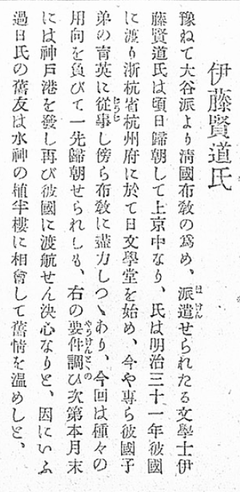 伊藤賢道氏
豫ねて大谷派より淸國布敎の爲め、派遣せられたる文學士伊
藤賢道氏は頃日歸朝して上京中なり、氏は明治三十一年彼國
に渡り浙杭省杭州府に於て日文學堂を始め、今や專ら彼國子
弟の育英に從事し傍ら布敎に盡力しつゝあり、今回は種々の
用向を負びて一先歸朝せられしも、右の要件調ひ次第本月末
には神戸港を發し再び彼國に渡航せん決心なりと、因にいふ
過日氏の舊友は水神の植半樓に相會して舊情を溫めしと、